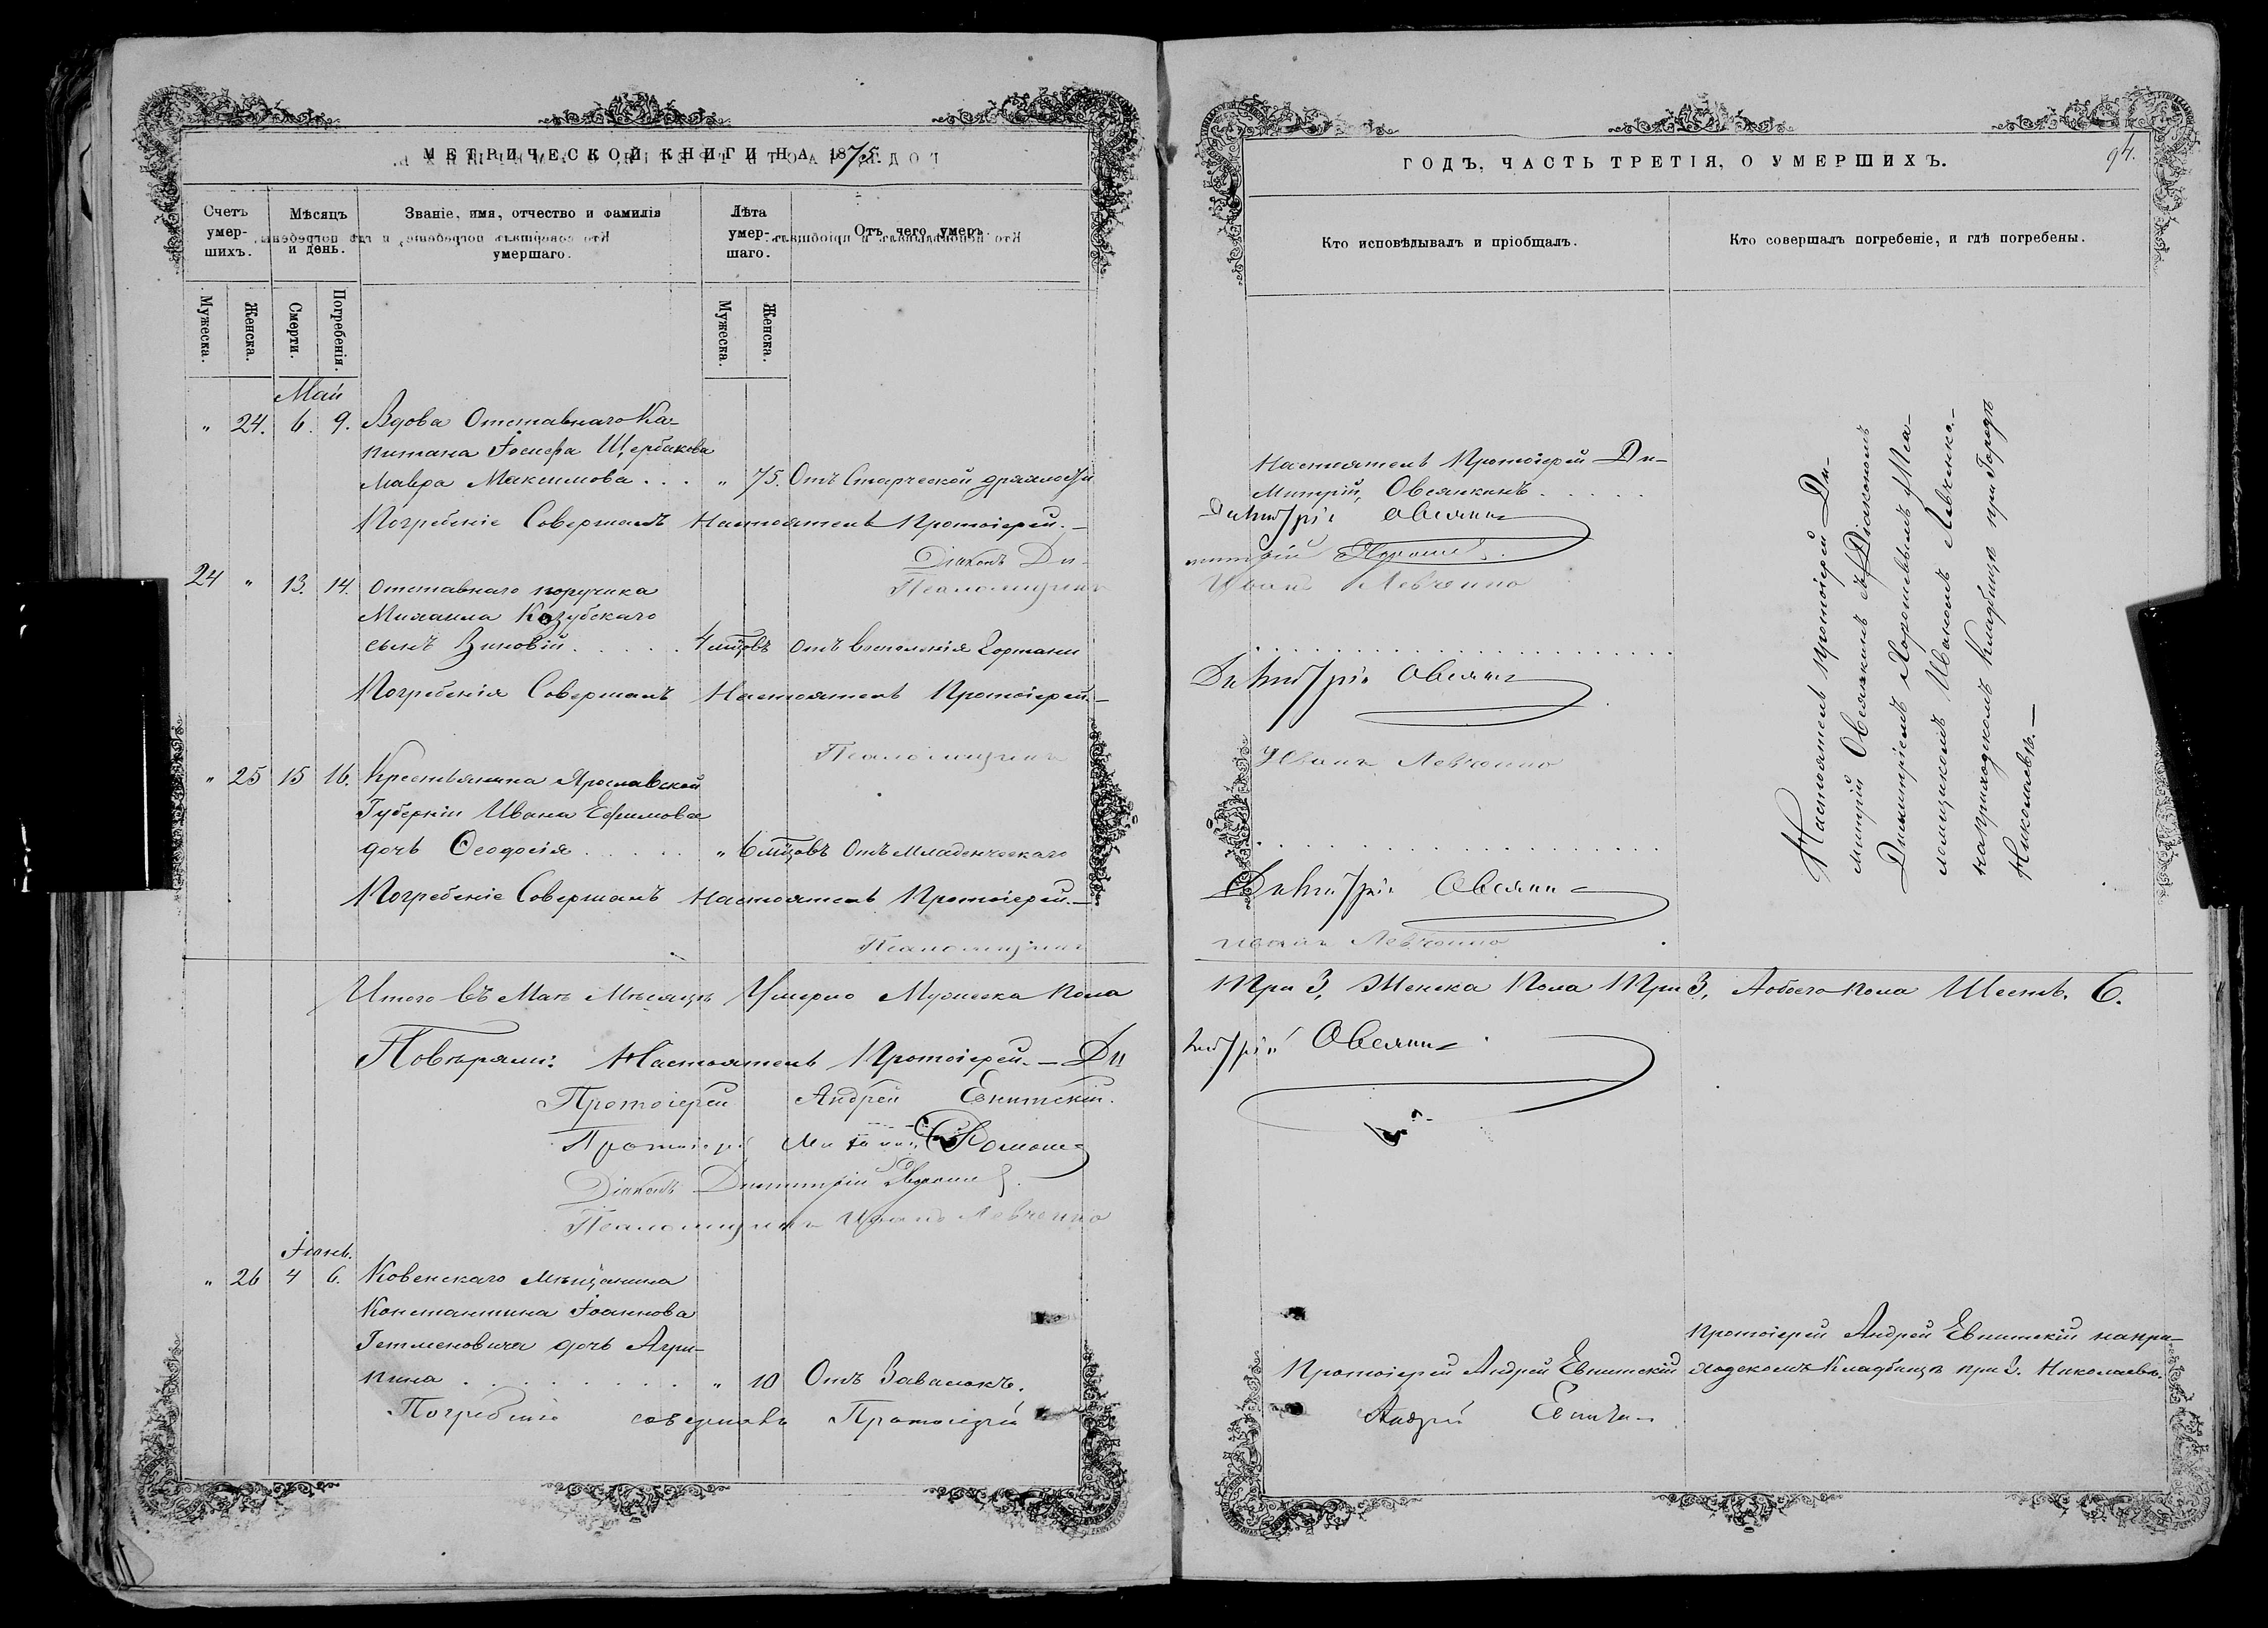 МЕТРИЧЕСКОЙ КНИГИ НА 1875.
Счетъ умер-шихъ.
Мѣсяцъ и день.
Званіе, имя, отчество и фамилія умершаго.
Лѣта умер-шаго.
Отъ чего умеръ.
Мужеска.
Женска.
Смерти.
Погребенія.
Мужеска.
Женска.
Май
" 24. 6. 9. Вдова Отставнаго Ка-
питана Іосифа Щербакова
Мавра Максимова . . . " 75. Отъ Старческой дряхлости
Погребеніе Совершалъ Настоятель Протоіерей. —
Діаконъ Ди-
Псаломщикъ
24 " 13. 14. Отставнаго поручика
Михаила Козубскаго
сынъ Зиновій . . . . . 4 мѣсцовъ Отъ воспаленія Гортани
Погребенія Совершалъ Настоятель Протоіерей. —
Псаломщикъ
" 25 15 16. Крестьянина Ярославской
Губерніи Ивана Ефимова
дочь Ѳеодосія . . . . . " 6 мѣсцовъ Отъ Младенческаго
Погребеніе Совершалъ Настоятель Протоіерей. —
Псаломщикъ
Итого въ Маѣ Мѣсяцѣ Умерло Мужеска Пола
Повѣряли: Настоятель Протоіерей. — Ди
Протоіерей Андрей Евнитскій.
Протоіерей
Діаконъ Димитрій
Псаломщикъ Иванъ Левченко
Іюнь.
" 26 4 6. Ковенскаго Мѣщанина
Константина Іоаннова
Гетменовича дочь Агри-
пина . . . . . . . . . " 10 Отъ Завалокъ.
Погребеніе совершалъ Протоіерей
ГОДЪ, ЧАСТЬ ТРЕТІЯ, О УМЕРШИХЪ.
94.
Кто исповѣдывалъ и пріобщалъ.
Кто совершалъ погребеніе, и гдѣ погребены.
Настоятель Протоіерей Ди-
митрій Овсянкинъ . . . . .
Димитрій Овсянкин
митрій
Иванъ Левченко
Димитрій Овсянкин
Иванъ Левченко
Димитрій Овсянкин
Иванъ Левченко
Настоятель Протоіерей Ди-
митрій Овсянкинъ съ Діакономъ
Димитріемъ Хорошевымъ Пса-
ломщикомъ Иваномъ Левченко. —
на приходскомъ Кладбищѣ при Городѣ
Николаевѣ. —
Три 3, Женска Пола Три 3, Обоего Пола Шесть. 6.
митрій Овсянкин
Протоіерей Андрей Евнитскій
Протоіерей Андрей Евнитскій на при-
ходскомъ Кладбищѣ при Г. Николаевѣ.
Андрей